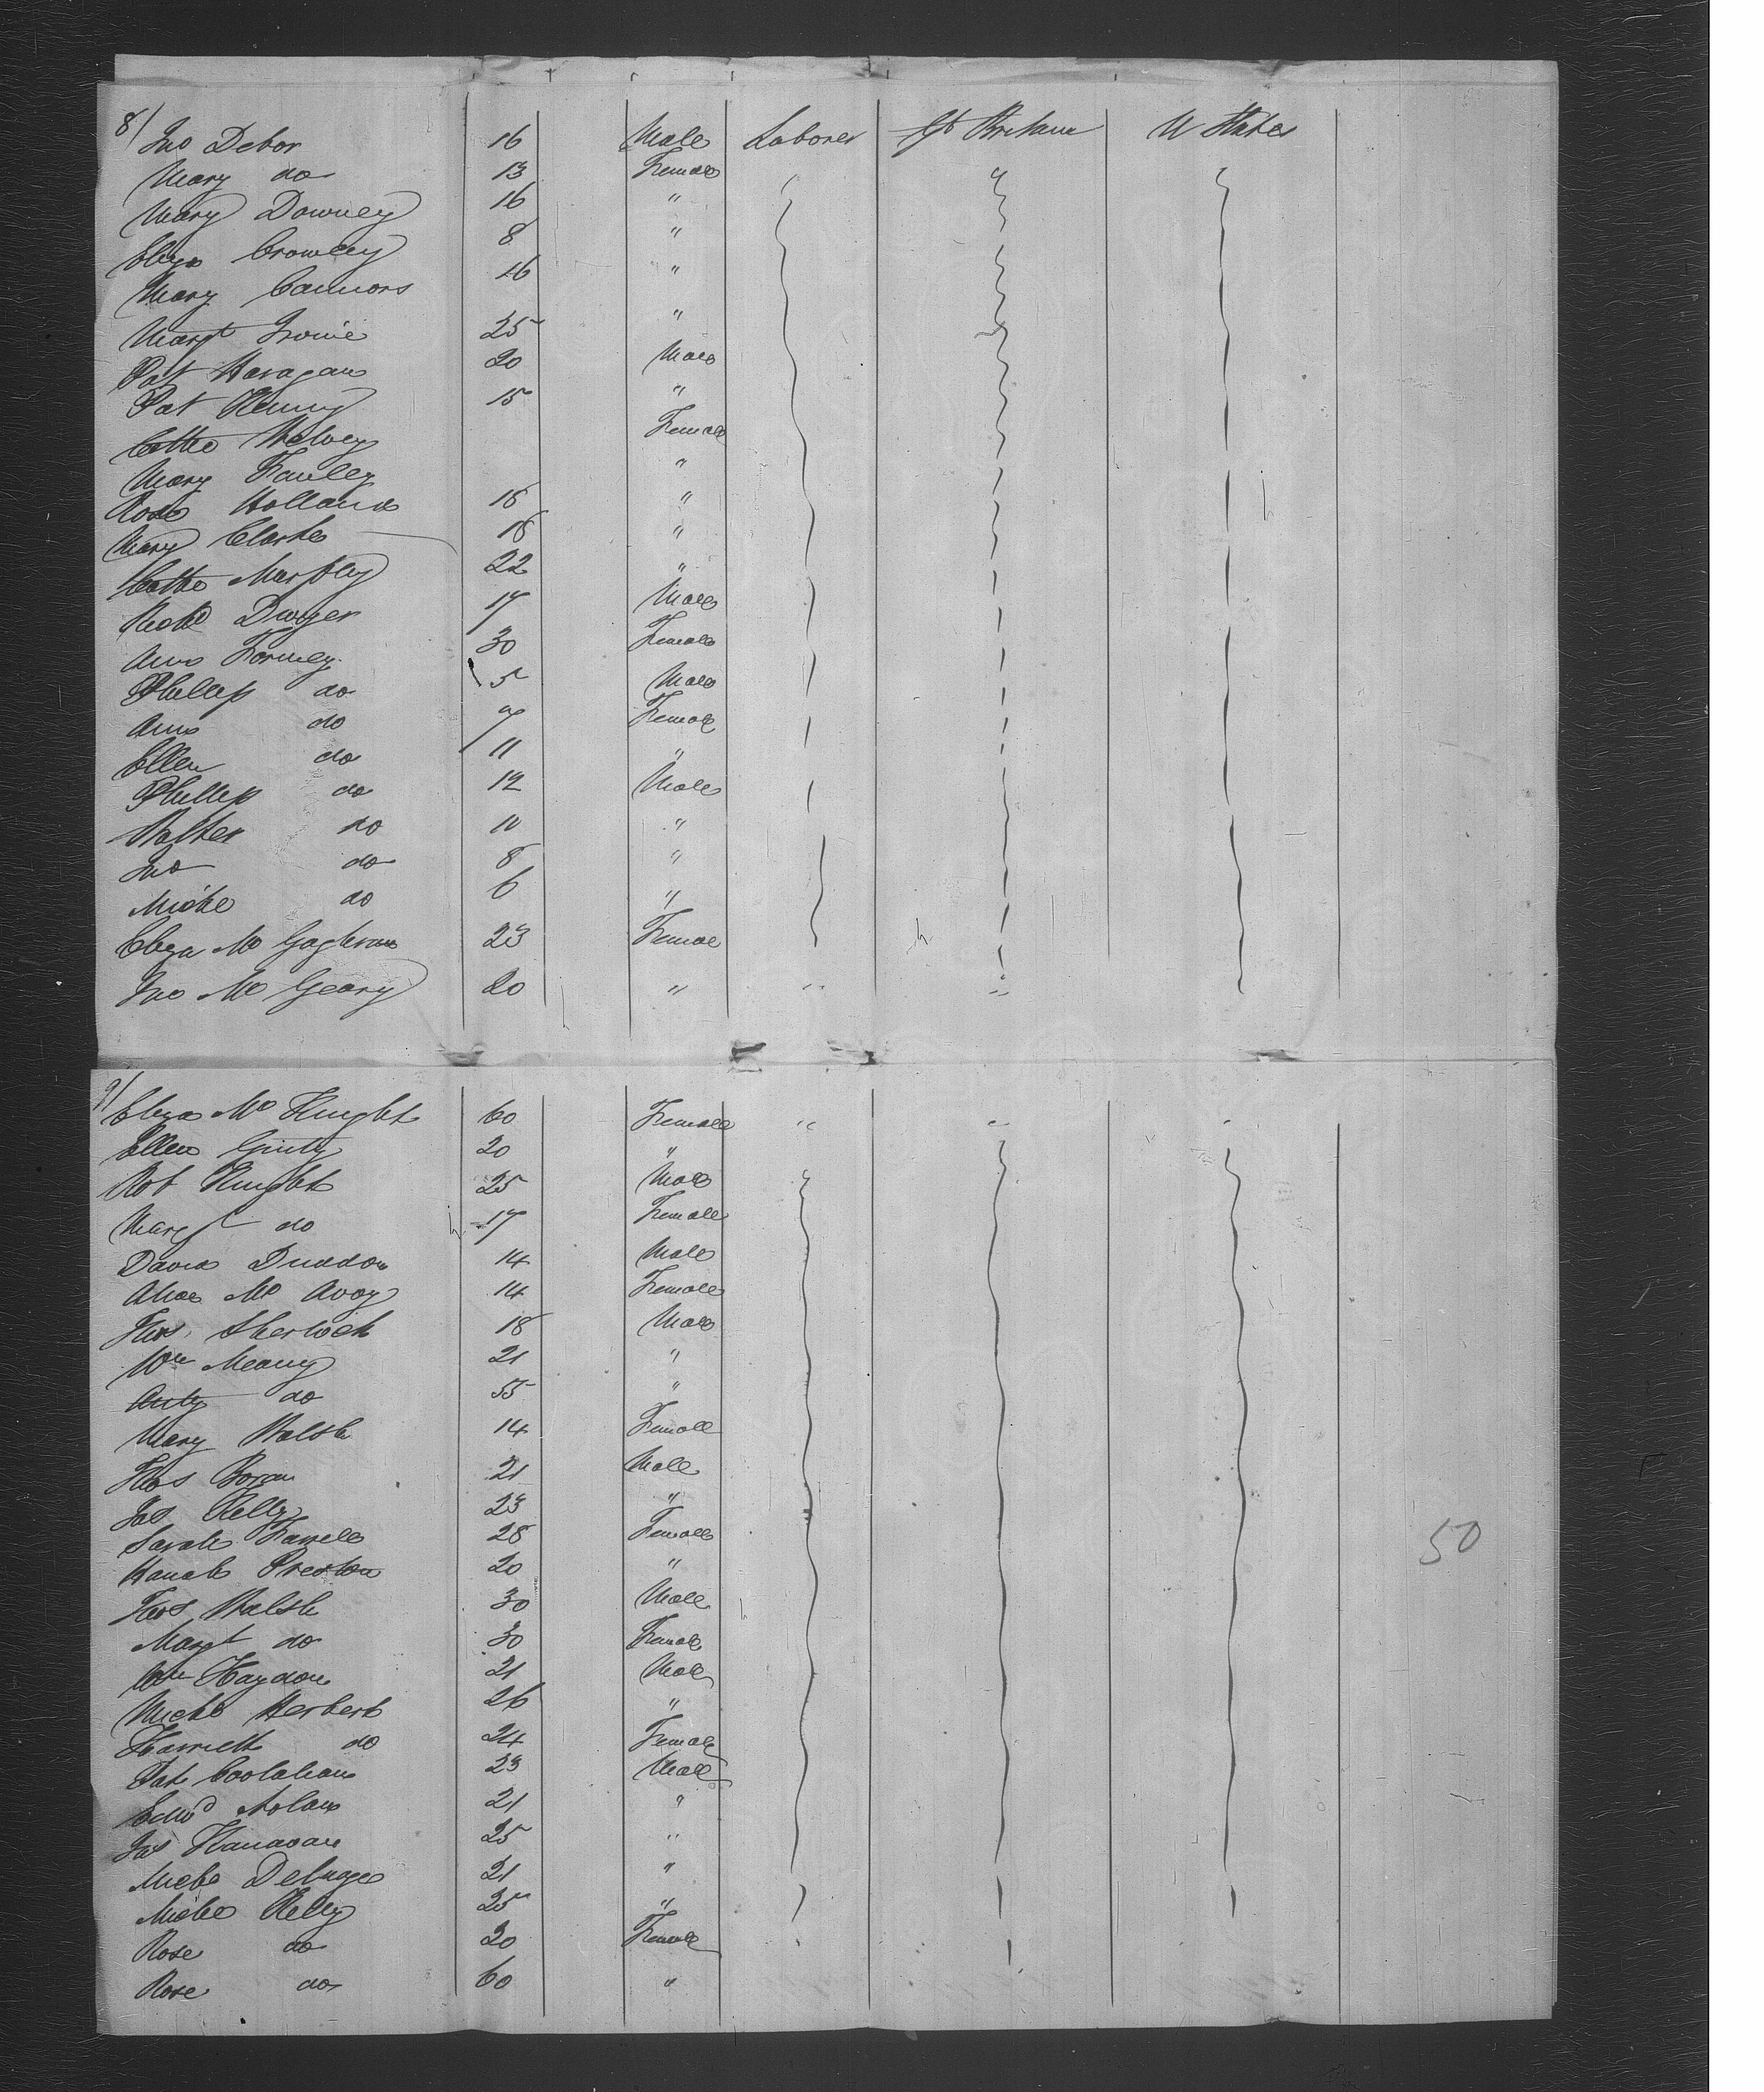 8/ Jno Debor 16 Male Laborer Gt Britain U States
Mary do 13 Female
Mary Downey 16 "
Eliza Crowley 8 "
Mary Connors 16 "
Margt 25 "
Pat 20 Male
Pat Kenny 15 "
Cathe Female
Mary "
Rose Holland 18 "
Mary Clarke 18 "
Cathe Murphy 22 "
Dwyer 17 Male
Ann 30 Female
Phillip do 5 Male
Ann do 7 Female
Ellen do 11 "
Phillip do 12 Male
Walter do 10 "
Jno do 8 "
Miche do 6 "
Eliza Mc 23 Female
Jno Mc Geary 20 " " "
9/ Eliza Mc Knight 60 Female " " "
Ellen Ginty 20 "
Rob Knight 25 Male
Margt do 17 Female
David 14 Male
Alice Mc Avoy 14 Female
Thos Sherlock 18 Male
Wm Meany 21 "
Anty do 55 "
Mary Walsh 14 Female
Thos 21 Male
Jas Kelly 23 "
Sarah Farrell 28 Female
Hanah Preston 20 "
Thos Walsh 30 Male
Margt do 30 Female
Wm Haydon 21 Male
Miche Herbert 26 "
Harriett do 24 Female
Pat Coolahan 23 Male
Edwd Nolan 21 "
Jas 25 "
Miche 21 "
Miche Kelly 25 "
Rose do 20 Female
Rose do 60 "
50